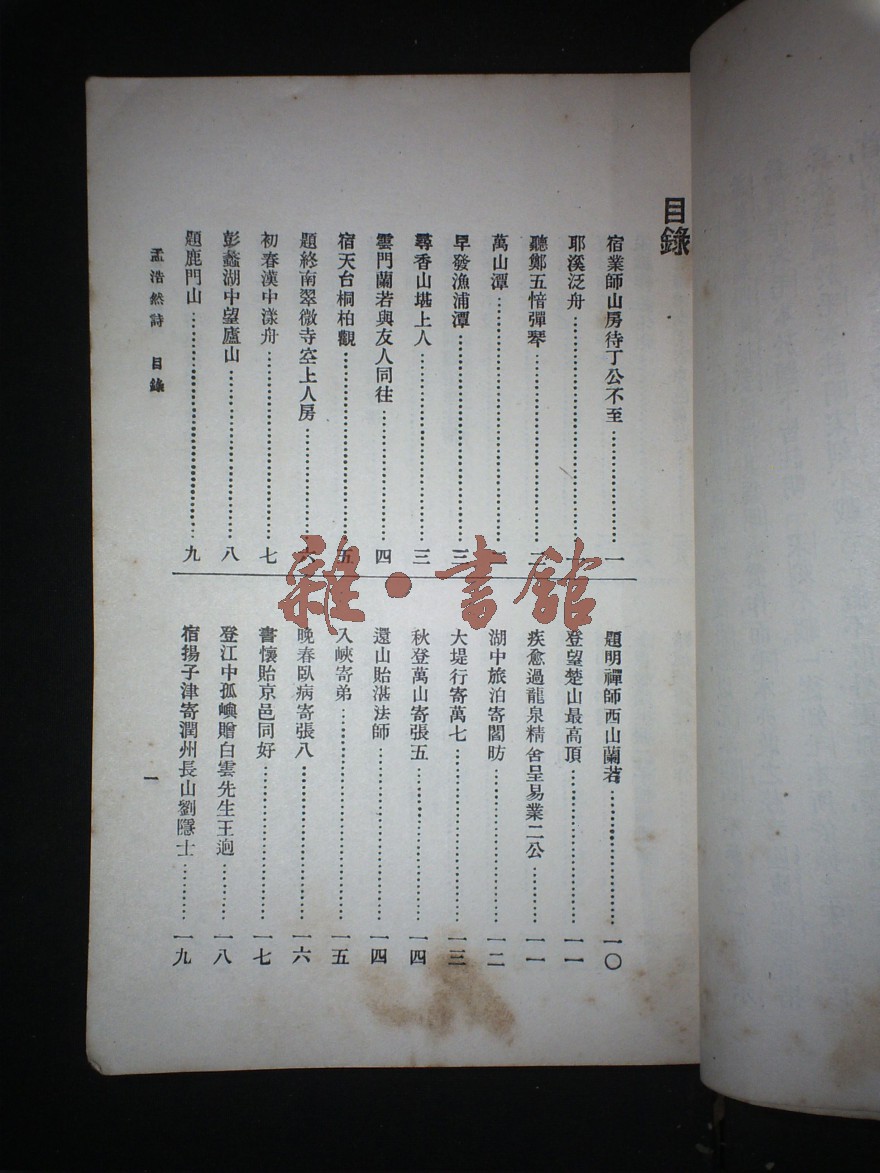 目錄
宿業師山房待丁公不至…………一
耶溪泛舟…………一
聽鄭五愔彈琴…………二
萬山潭…………二
早發漁浦潭…………三
尋香山堪上人…………三
雲門蘭若與友人同往…………四
宿天台桐柏觀…………五
題終南翠微寺空上人房…………六
初春漢中漾舟…………七
彭蠡湖中望廬山…………八
題鹿門山…………九
題明禪師西山蘭若…………一〇
登望楚山最高頂…………一一
疾愈過龍泉精舍呈易業二公…………一一
湖中旅泊寄閻昉…………一二
大堤行寄萬七…………一三
秋登萬山寄張五…………一四
還山貽湛法師…………一四
入峽寄弟…………一五
晚春臥病寄張八…………一六
書懷貽京邑同好…………一七
登江中孤嶼贈白雲先生王迥…………一八
宿揚子津寄潤州長山劉隱士…………一九
孟浩然詩 目錄
一
雜·書館